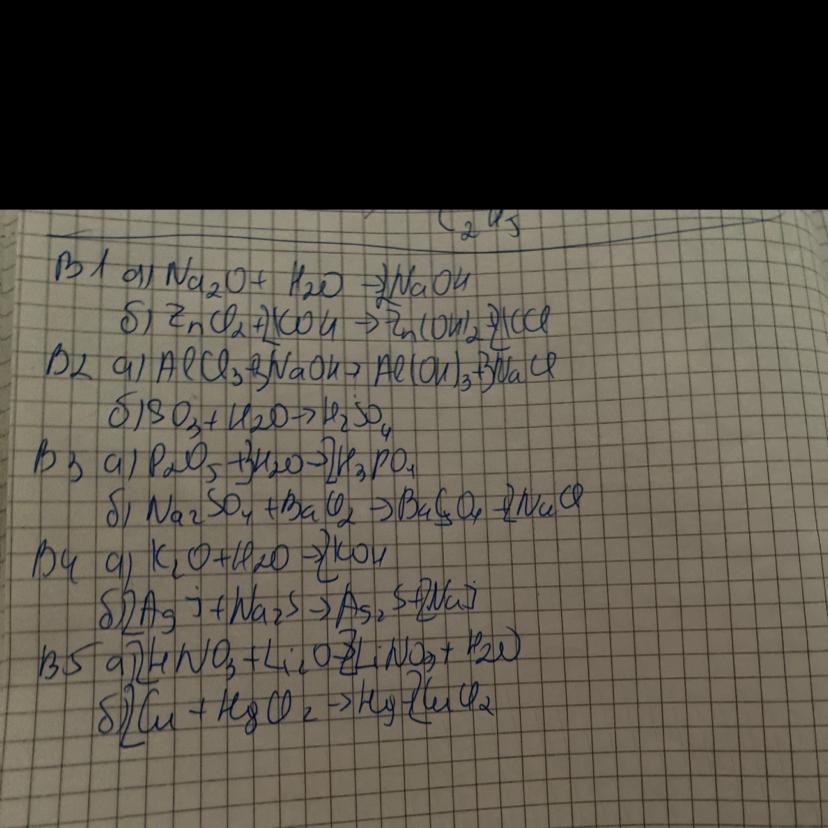 C₂H₅
В1 а) Na₂O + H₂O → 2NaOH
б) ZnCl₂ + 2KOH → Zn(OH)₂ 2KCl
В2 а) AlCl₃ + 3NaOH → Al(OH)₃ + 3NaCl
б) SO₃ + H₂O → H₂SO₄
В3 а) P₂O₅ + 3H₂O → 2H₃PO₄
б) Na₂SO₄ + BaCl₂ → BaSO₄ + 2NaCl
В4 а) K₂O + H₂O → 2KOH
б) 2AgJ + Na₂S → Ag₂S + 2NaJ
В5 а) 2HNO₃ + Li₂O → 2LiNO₃ + H₂O
б) 2Cu + HgCl₂ → Hg + 2CuCl₂